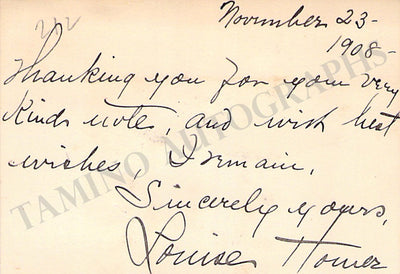 212
November 23-
1908-
Thanking you for your very
kind note, and with best
wishes, I remain,
Sincerely yours,
Louise Homer
TAMINO AUTOGRAPHS